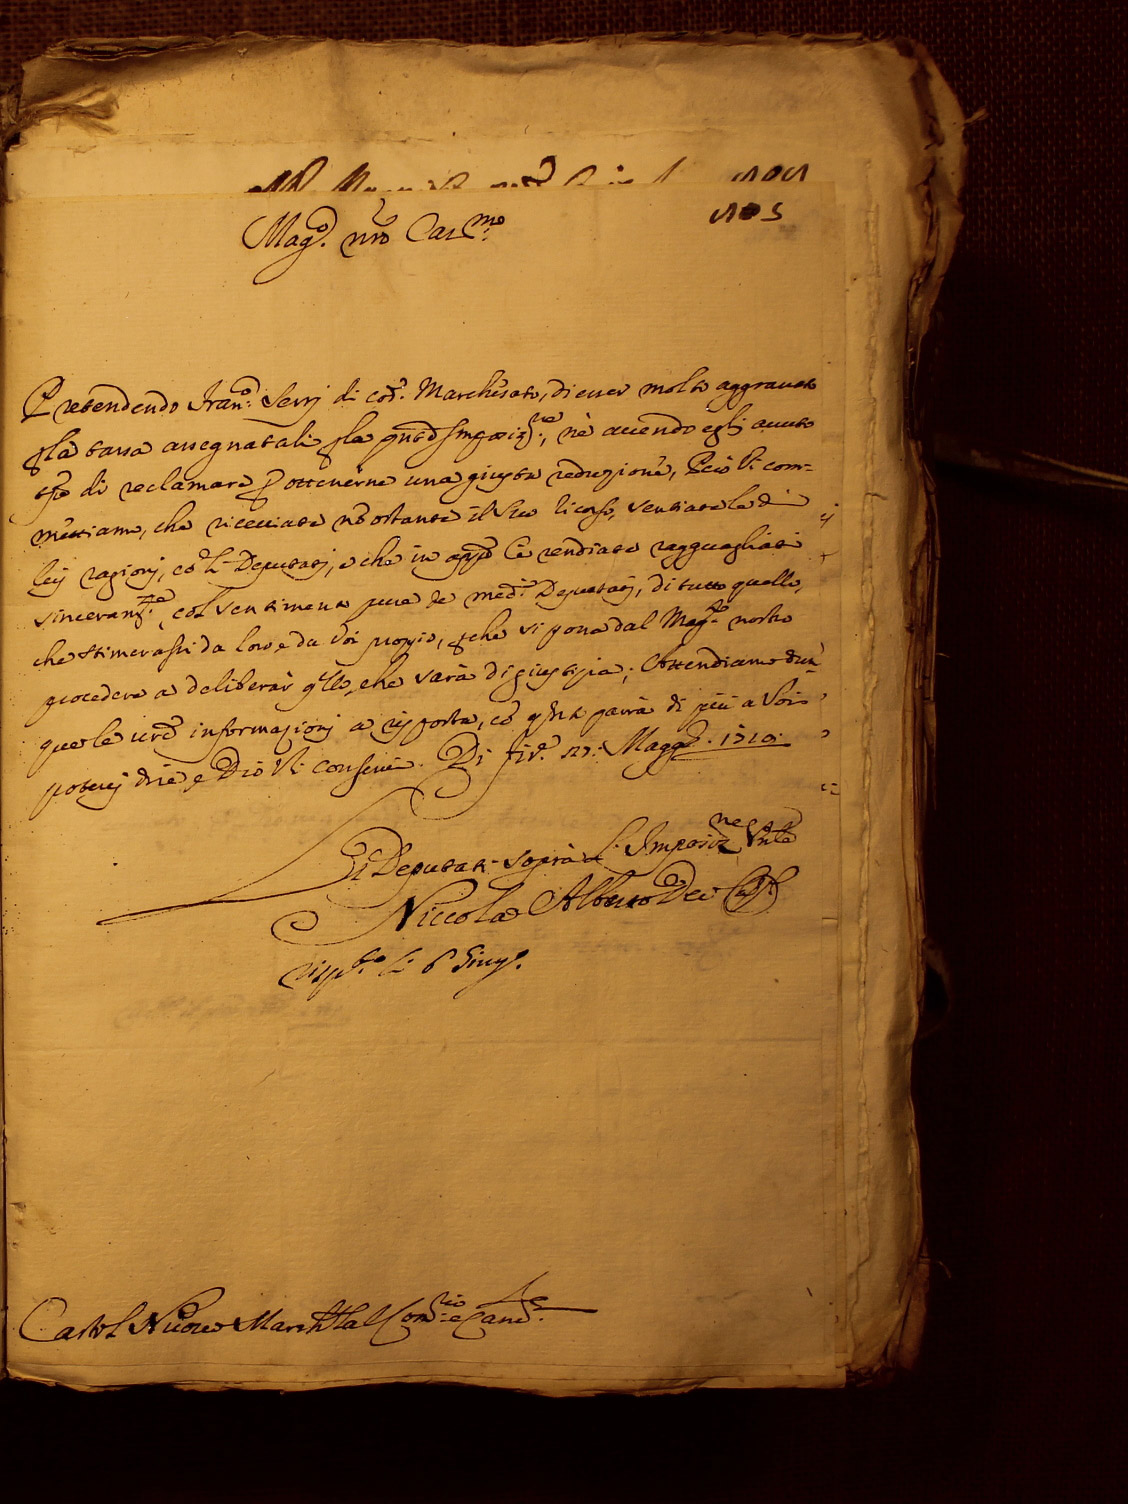 Mag.co nro Car.mo
Pretendendo Fran.o Serrj di cod.o Marchesato, di esser molto aggravato
p la tassa assegnatali p la pnte Imposiz.ne, nè avendo egli avuto
tpo di reclamare p ottenerne una giusta reduzione, Pciò Vi com=
mettiamo, che riceviate nōostante il suo ricorso, sentiate le di
lej ragionj, cō li Deputatj, e che in appo Ce rendiate ragguagliati
sinceram.te, col sentimento pure de med.i Deputatj, di tutto quello,
che stimerassi da loro, e da Voi proprio, pche si possa dal Mag.to nostro
procedere a deliberar qllo, che sarà di giustizia; Attendiamo dun=
que le vre informazionj a risposta, cō qsta parrà di più a Voi
potersj dire, e Dio Vi conservi. Di Fir.e 27: Magg.o 1719.
Li Deputati Sopra l'Imposiz.ne Vnle
Niccolò Alberto Dei Canc.re
Risp.to li 6 Giug.o
Castel Nuovo Marchto al Com.rio e Canc.re